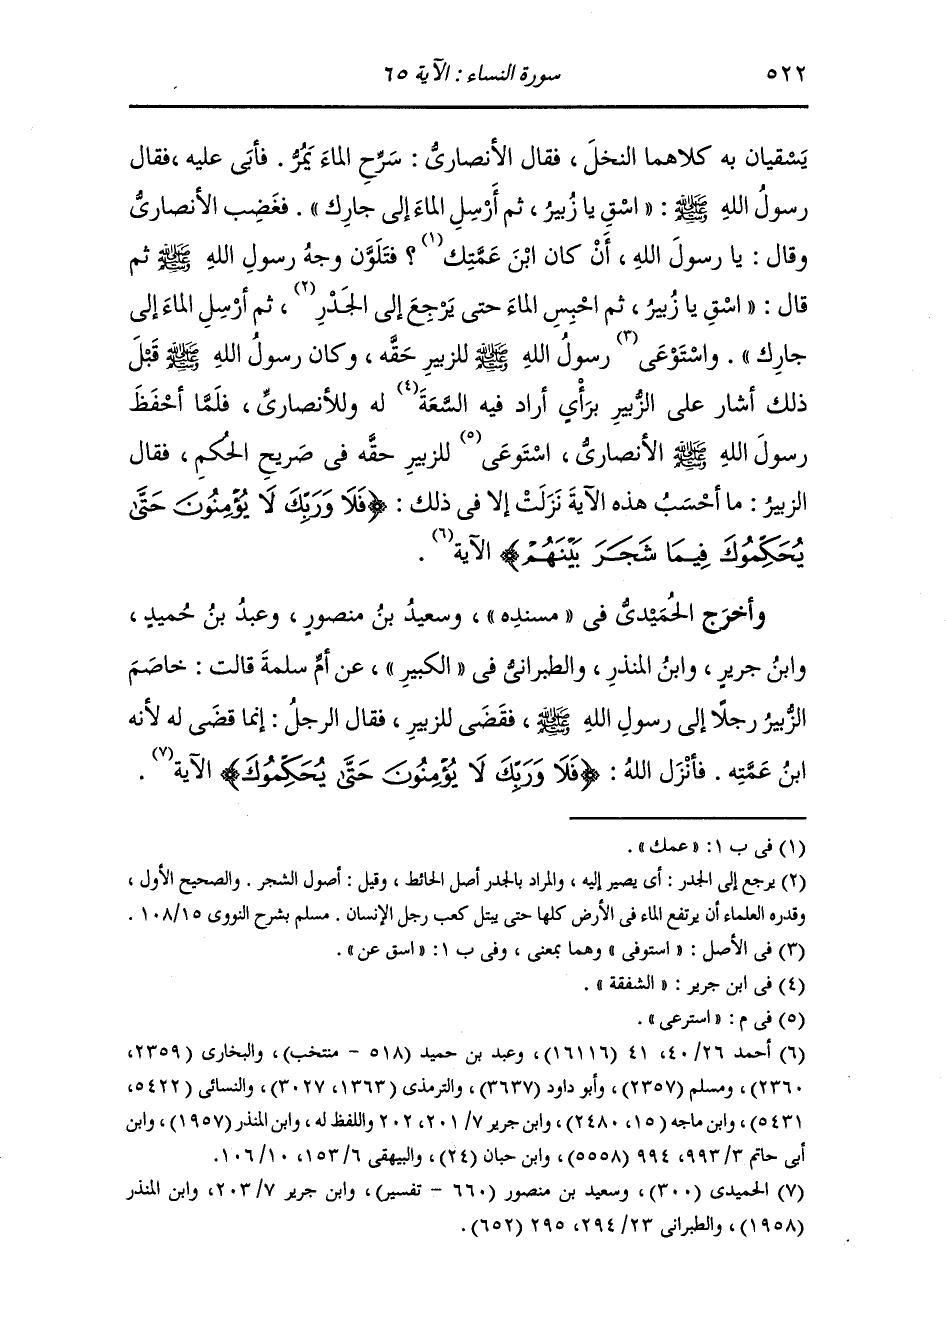 ٥٢٢ سورة النساء : الآية ٦٥
يَسْقيان به كلاهما النخلَ ، فقال الأنصارىُّ : سَرِّحِ الماءَ يَمُرُّ . فأبَى عليه ،فقال
رسولُ اللهِ ﷺ : « اسْقِ يا زُبيرُ ، ثم أَرْسِلِ الماءَ إلى جارِك » . فغَضِب الأنصارىُّ
وقال : يا رسولَ اللهِ ، أَنْ كان ابْنَ عَمَّتِك(١) ؟ فتَلَوَّن وجهُ رسولِ اللهِ ﷺ ثم
قال : « اسْقِ يا زُبيرُ ، ثم احْبِسِ الماءَ حتى يَرْجِعَ إلى الجَدْرِ(٢) ، ثم أرْسِلِ الماءَ إلى
جارِك » . واسْتَوْعَى(٣) رسولُ اللهِ ﷺ للزبيرِ حَقَّه ، وكان رسولُ اللهِ ﷺ قَبْلَ
ذلك أشار على الزُّبيرِ برَأْيٍ أراد فيه السَّعَةَ(٤) له وللأنصارىِّ ، فلَمَّا أحْفَظَ
رسولَ اللهِ ﷺ الأنصارىُّ ، اسْتَوعَى(٥) للزبيرِ حقَّه فى صَريحِ الحُكمِ ، فقال
الزبيرُ : ما أحْسَبُ هذه الآيةَ نَزَلَتْ إلا فى ذلك : ﴿فَلَا وَرَبِّكَ لَا يُؤْمِنُونَ حَتَّىٰ
يُحَكِّمُوكَ فِيمَا شَجَرَ بَيْنَهُمْ﴾ الآية(٦) .
وأخرَج الحُمَيْدىُّ فى « مسندِه » ، وسعيدُ بنُ منصورٍ ، وعبدُ بنُ حُميدٍ ،
وابنُ جريرٍ ، وابنُ المنذرِ ، والطبرانىُّ فى « الكبيرِ » ، عن أمِّ سلمةَ قالت : خاصَمَ
الزُّبيرُ رجلًا إلى رسولِ اللهِ ﷺ ، فقَضَى للزبيرِ ، فقال الرجلُ : إنما قضَى له لأنه
ابنُ عَمَّتِه . فأنْزَل اللهُ : ﴿فَلَا وَرَبِّكَ لَا يُؤْمِنُونَ حَتَّىٰ يُحَكِّمُوكَ﴾ الآية(٧) .
(١) فى ب ١: «عمك» .
(٢) يرجع إلى الجدر : أى يصير إليه ، والمراد بالجدر أصل الحائط ، وقيل : أصول الشجر . والصحيح الأول ،
وقدره العلماء أن يرتفع الماء فى الأرض كلها حتى يبتل كعب رجل الإنسان . مسلم بشرح النووى ١٠٨/١٥ .
(٣) فى الأصل : « استوفى » وهما بمعنى ، وفى ب ١: «اسق عن» .
(٤) فى ابن جرير : « الشفقة » .
(٥) فى م : « استرعى» .
(٦) أحمد ٤٠/٢٦، ٤١ (١٦١١٦) ، وعبد بن حميد (٥١٨ - منتخب) ، والبخارى (٢٣٥٩،
٢٣٦٠) ، ومسلم (٢٣٥٧) ، وأبو داود (٣٦٣٧) ، والترمذى (١٣٦٣، ٣٠٢٧) ، والنسائى (٥٤٢٢،
٥٤٣١) ، وابن ماجه (١٥، ٢٤٨٠) ، وابن جرير ٧/ ٢٠١، ٢٠٢ واللفظ له ، وابن المنذر (١٩٥٧) ، وابن
أبى حاتم ٣/ ٩٩٣، ٩٩٤ (٥٥٥٨) ، وابن حبان (٢٤) ، والبيهقى ٦/ ١٥٣، ١٠/ ١٠٦.
(٧) الحميدى (٣٠٠) ، وسعيد بن منصور (٦٦٠ - تفسير) ، وابن جرير ٧/ ٢٠٣، وابن المنذر
(١٩٥٨) ، والطبرانى ٢٣/ ٢٩٤، ٢٩٥ (٦٥٢) .